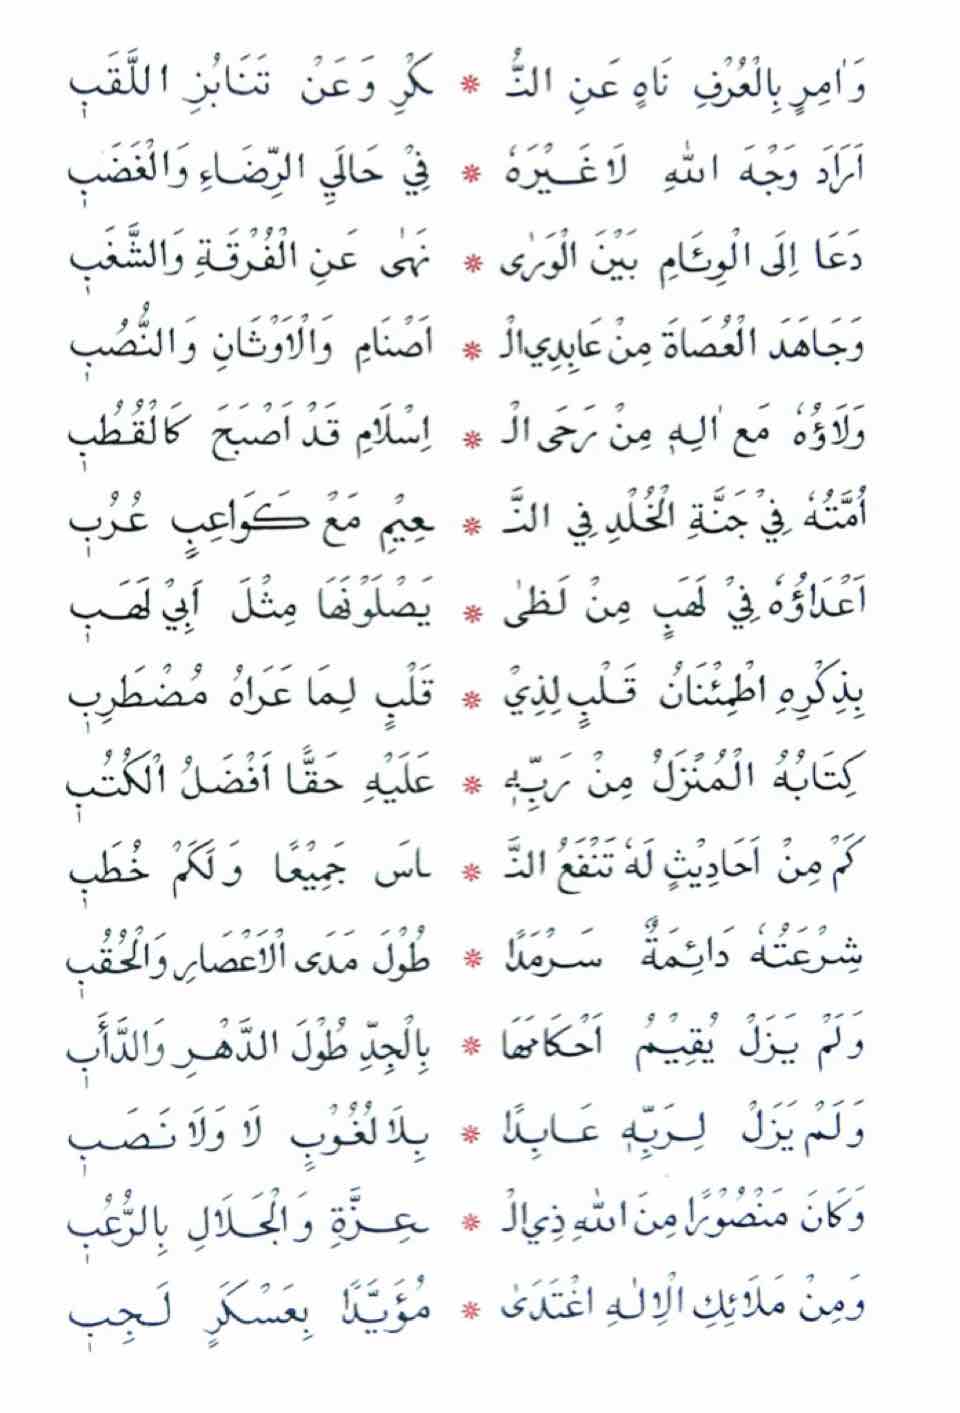 وَاٰمِرٍ بِالْعُرْفِ نَاهٍ عَنِ النُّ * كْرِ وَعَنْ تَنَابُزِ اللَّقَبِ
اَرَادَ وَجْهَ اللهِ لَا غَيْرَهٗ * فِيْ حَالَيِ الرِّضَاءِ وَالْغَضَبِ
دَعَا اِلَى الْوِئَامِ بَيْنَ الْوَرٰى * نَهٰى عَنِ الْفُرْقَةِ وَالشَّغَبِ
وَجَاهَدَ الْعُصَاةَ مِنْ عَابِدِي الْ * اَصْنَامِ وَالْاَوْثَانِ وَالنُّصُبِ
وَلَاؤُهٗ مَع اٰلِهٖ مِنْ رَحَى الْ * اِسْلَامِ قَدْ اَصْبَحَ كَالْقُطُبِ
اُمَّتُهٗ فِيْ جَنَّةِ الْخُلْدِ فِي النَّ * عِيْمِ مَعْ كَوَاعِبٍ عُرُبِ
اَعْدَاؤُهٗ فِيْ لَهَبٍ مِنْ لَظٰى * يَصْلَوْنَهَا مِثْلَ اَبِيْ لَهَبِ
بِذِكْرِهِ اطْمِئْنَانُ قَلْبٍ لِذِيْ * قَلْبٍ لِمَا عَرَاهُ مُضْطَرِبِ
كِتَابُهُ الْمُنْزَلُ مِنْ رَبِّهٖ * عَلَيْهِ حَقًّا اَفْضَلُ الْكُتُبِ
كَمْ مِنْ اَحَادِيْثٍ لَهٗ تَنْفَعُ النَّ * اسَ جَمِيْعًا وَلَكَمْ خُطَبِ
شِرْعَتُهٗ دَائِمَةٌ سَرْمَدًا * طُوْلَ مَدَى الْاَعْصَارِ وَالْحُقُبِ
وَلَمْ يَزَلْ يُقِيْمُ اَحْكَامَهَا * بِالْجِدِّ طُوْلَ الدَّهْرِ وَالدَّأَبِ
وَلَمْ يَزَلْ لِرَبِّهٖ عَابِدًا * بِلَا لُغُوْبٍ لَا وَلَا نَصَبِ
وَكَانَ مَنْصُوْرًا مِنَ اللهِ ذِي الْ * عِزَّةِ وَالْجَلَالِ بِالرُّعُبِ
وَمِنْ مَلَائِكِ الْاِلٰهِ اغْتَدَىٰ * مُؤَيَّدًا بِعَسْكَرٍ لَجِبِ